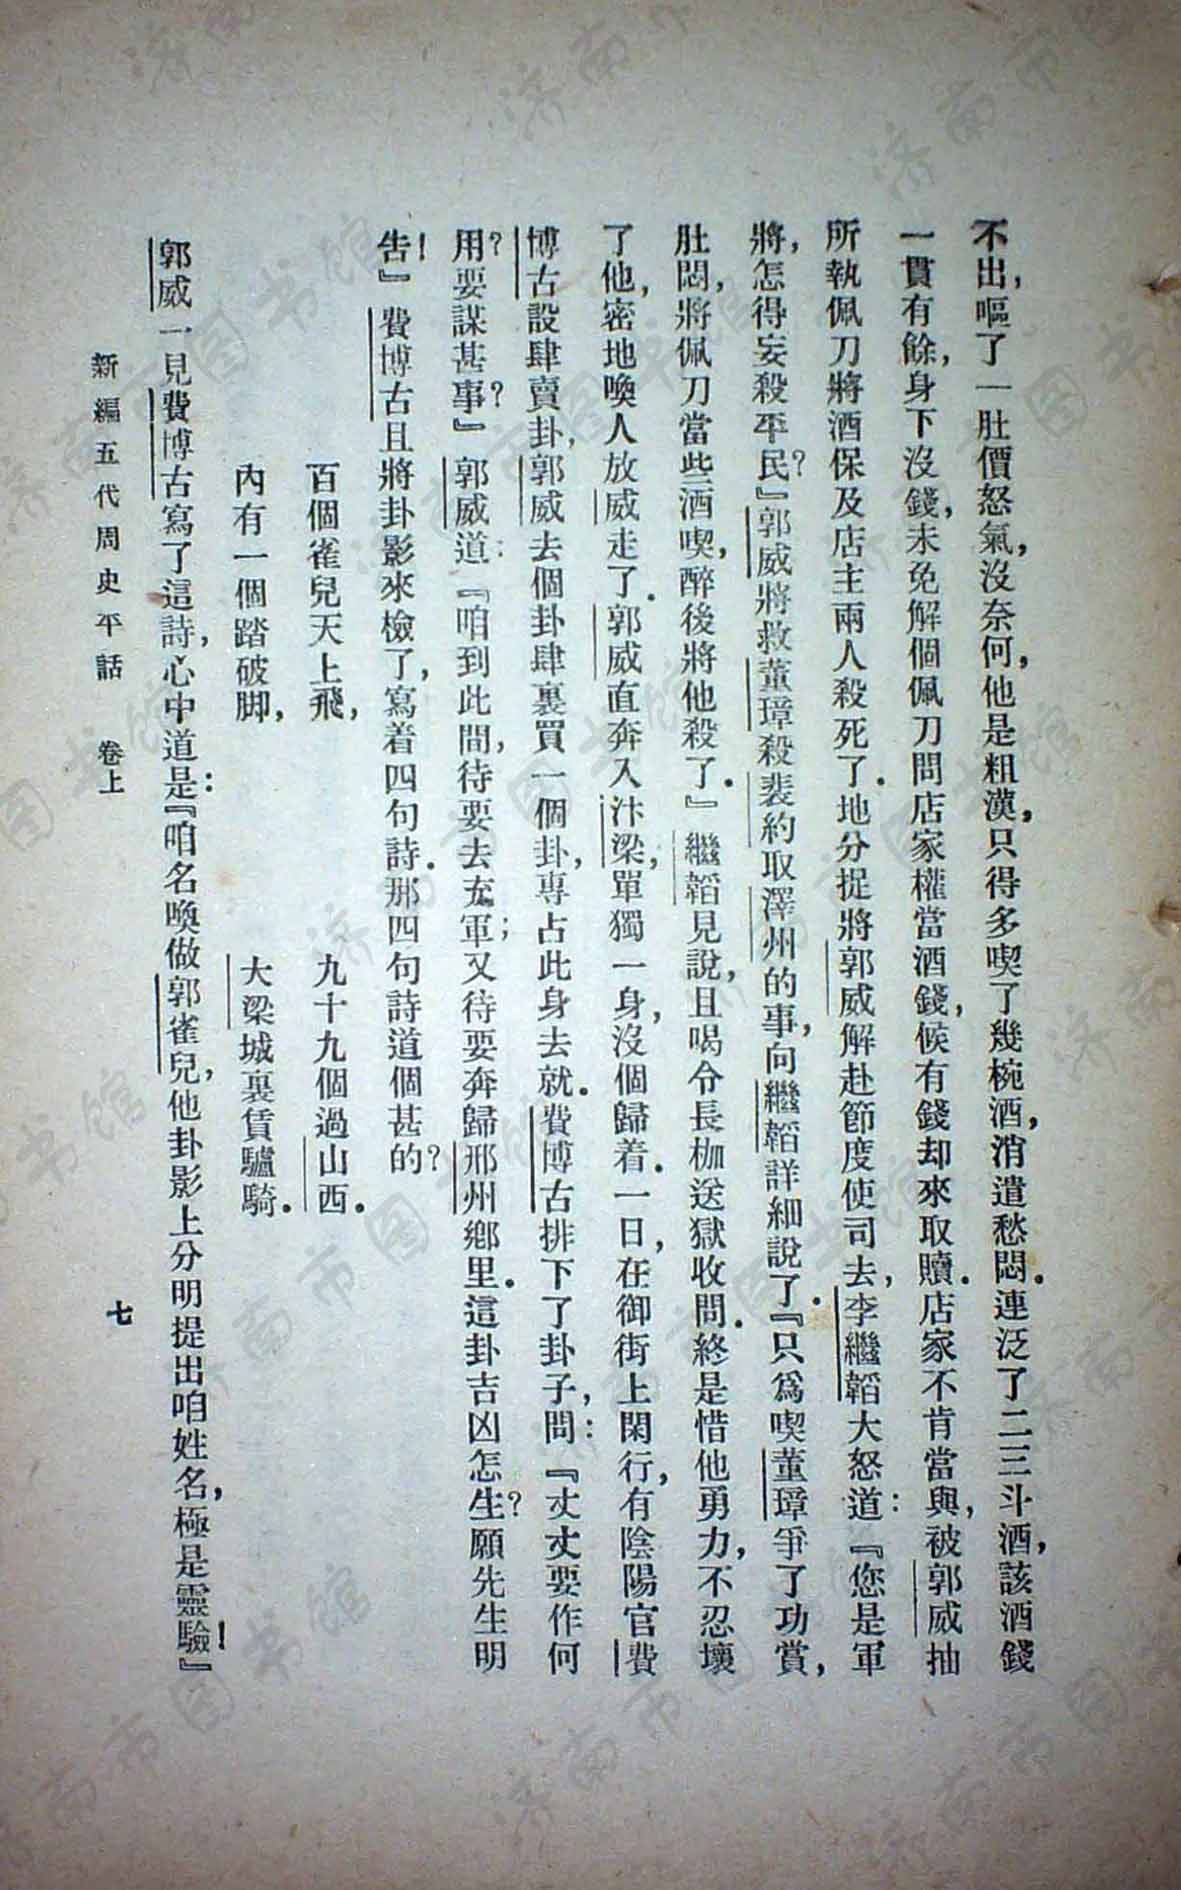 不出，嘔了一肚價怒氣，沒奈何，他是粗漢，只得多喫了幾椀酒，消遣愁悶。連泛了二三斗酒，該酒錢
一貫有餘，身下沒錢，未免解個佩刀問店家權當酒錢，候有錢却來取贖。店家不肯當與，被郭威抽
所執佩刀將酒保及店主兩人殺死了。地分捉將郭威解赴節度使司去，李繼韜大怒道：『您是軍
將，怎得妄殺平民？』郭威將救董璋殺裴約取澤州的事，向繼韜詳細說了。『只爲喫董璋爭了功賞，
肚悶，將佩刀當些酒喫，醉後將他殺了。』繼韜見說，且喝令長枷送獄收問。終是惜他勇力，不忍壞
了他，密地喚人放威走了。郭威直奔入汴梁，單獨一身，沒個歸着。一日，在御街上閑行，有陰陽官費
博古設肆賣卦，郭威去個卦肆裏買一個卦，專占此身去就。費博古排下了卦子，問：『丈丈要作何
用？要謀甚事？』郭威道：『咱到此間，待要去充軍；又待要奔歸邢州鄉里。這卦吉凶怎生？願先生明
告！』費博古且將卦影來檢了，寫着四句詩。那四句詩道個甚的？
百個雀兒天上飛，九十九個過山西。
內有一個踏破脚，大梁城裏賃驢騎。
郭威一見費博古寫了這詩，心中道是：『咱名喚做郭雀兒，他卦影上分明提出咱姓名，極是靈驗！』
新編五代周史平話 卷上 七
济南市图书馆